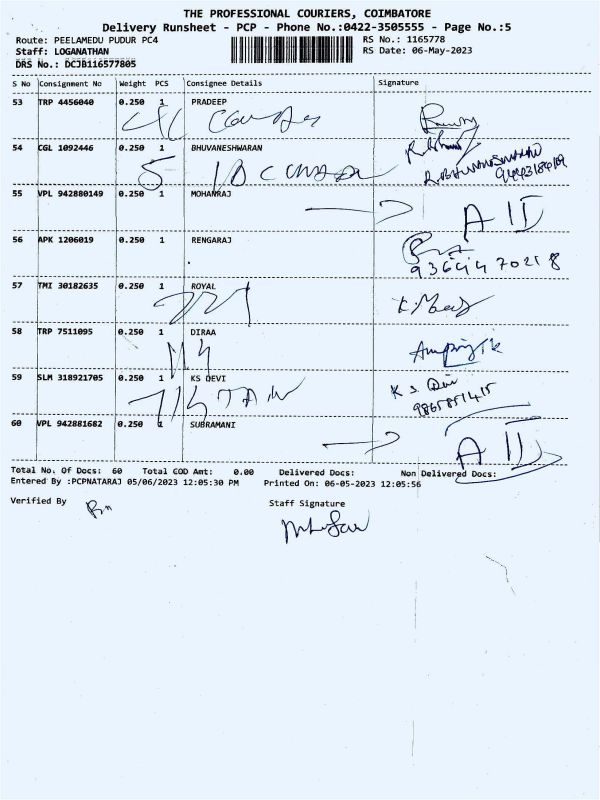 THE PROFESSIONAL COURIERS, COIMBATORE
Delivery Runsheet - PCP - Phone No.:0422-3505555 - Page No.:5
Route: PEELAMEDU PUDUR PC4 RS No.: 1165778
Staff: LOGANATHAN RS Date: 06-May-2023
DRS No.: DCJB116577805
S No Consignment No Weight PCS Consignee Details Signature
53 TRP 4456040 0.250 1 PRADEEP
54 CGL 1092446 0.250 1 BHUVANESHWARAN
R.BHUVANESWARAN
55 VPL 942880149 0.250 1 MOHANRAJ
A
56 APK 1206019 0.250 1 RENGARAJ
57 TMI 30182635 0.250 1 ROYAL
58 TRP 7511095 0.250 1 DIRAA
59 SLM 318921705 0.250 1 KS DEVI
K S Devi
9865851415
60 VPL 942881682 0.250 1 SUBRAMANI
A
Total No. Of Docs: 60 Total COD Amt: 0.00 Delivered Docs: Non Delivered Docs:
Entered By :PCPNATARAJ 05/06/2023 12:05:30 PM Printed On: 06-05-2023 12:05:56
Verified By Staff Signature